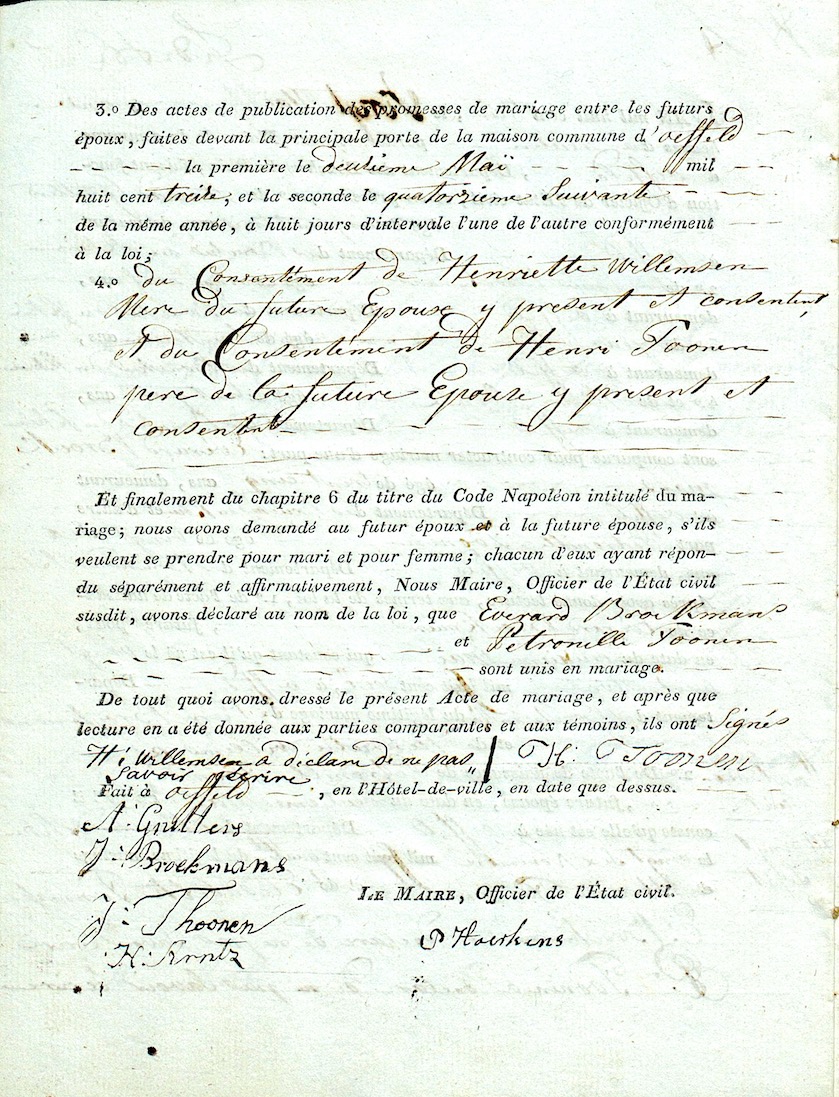 3.º Des actes de publication des promesses de mariage entre les futurs
époux, faites devant la principale porte de la maison commune d'oeffeld
la première le deutieme Maï mil
huit cent treise, et la seconde le quatorzieme Suivante
de la même année, à huit jours d'intervale l'une de l'autre conformément
à la loi;
4.º du Consentément de Henriette Willemsen
Mere du future Epouse y present et consentent,
et du Consentément de Henri Toonen
pere de la future Epouse y present et
consentent
Et finalement du chapitre 6 du titre du Code Napoléon intitulé du ma-
riage; nous avons demandé au futur époux et à la future épouse, s'ils
veulent se prendre pour mari et pour femme; chacun d'eux ayant répon-
du séparément et affirmativement, Nous Maire, Officier de l'État civil
susdit, avons déclaré au nom de la loi, que Everard Broekmans
et Petronille Toonen
sont unis en mariage.
De tout quoi avons dressé le présent Acte de mariage, et après que
lecture en a été donnée aux parties comparantes et aux témoins, ils ont Signés
H: Willemsen a déclare de ne pas H: Toonen
Savoir ecrire
Fait à oeffeld, en l'Hôtel-de-ville, en date que dessus.
J: Broekmans
LE MAIRE, Officier de l'État civil.
J: Thoonen
H: Arntz